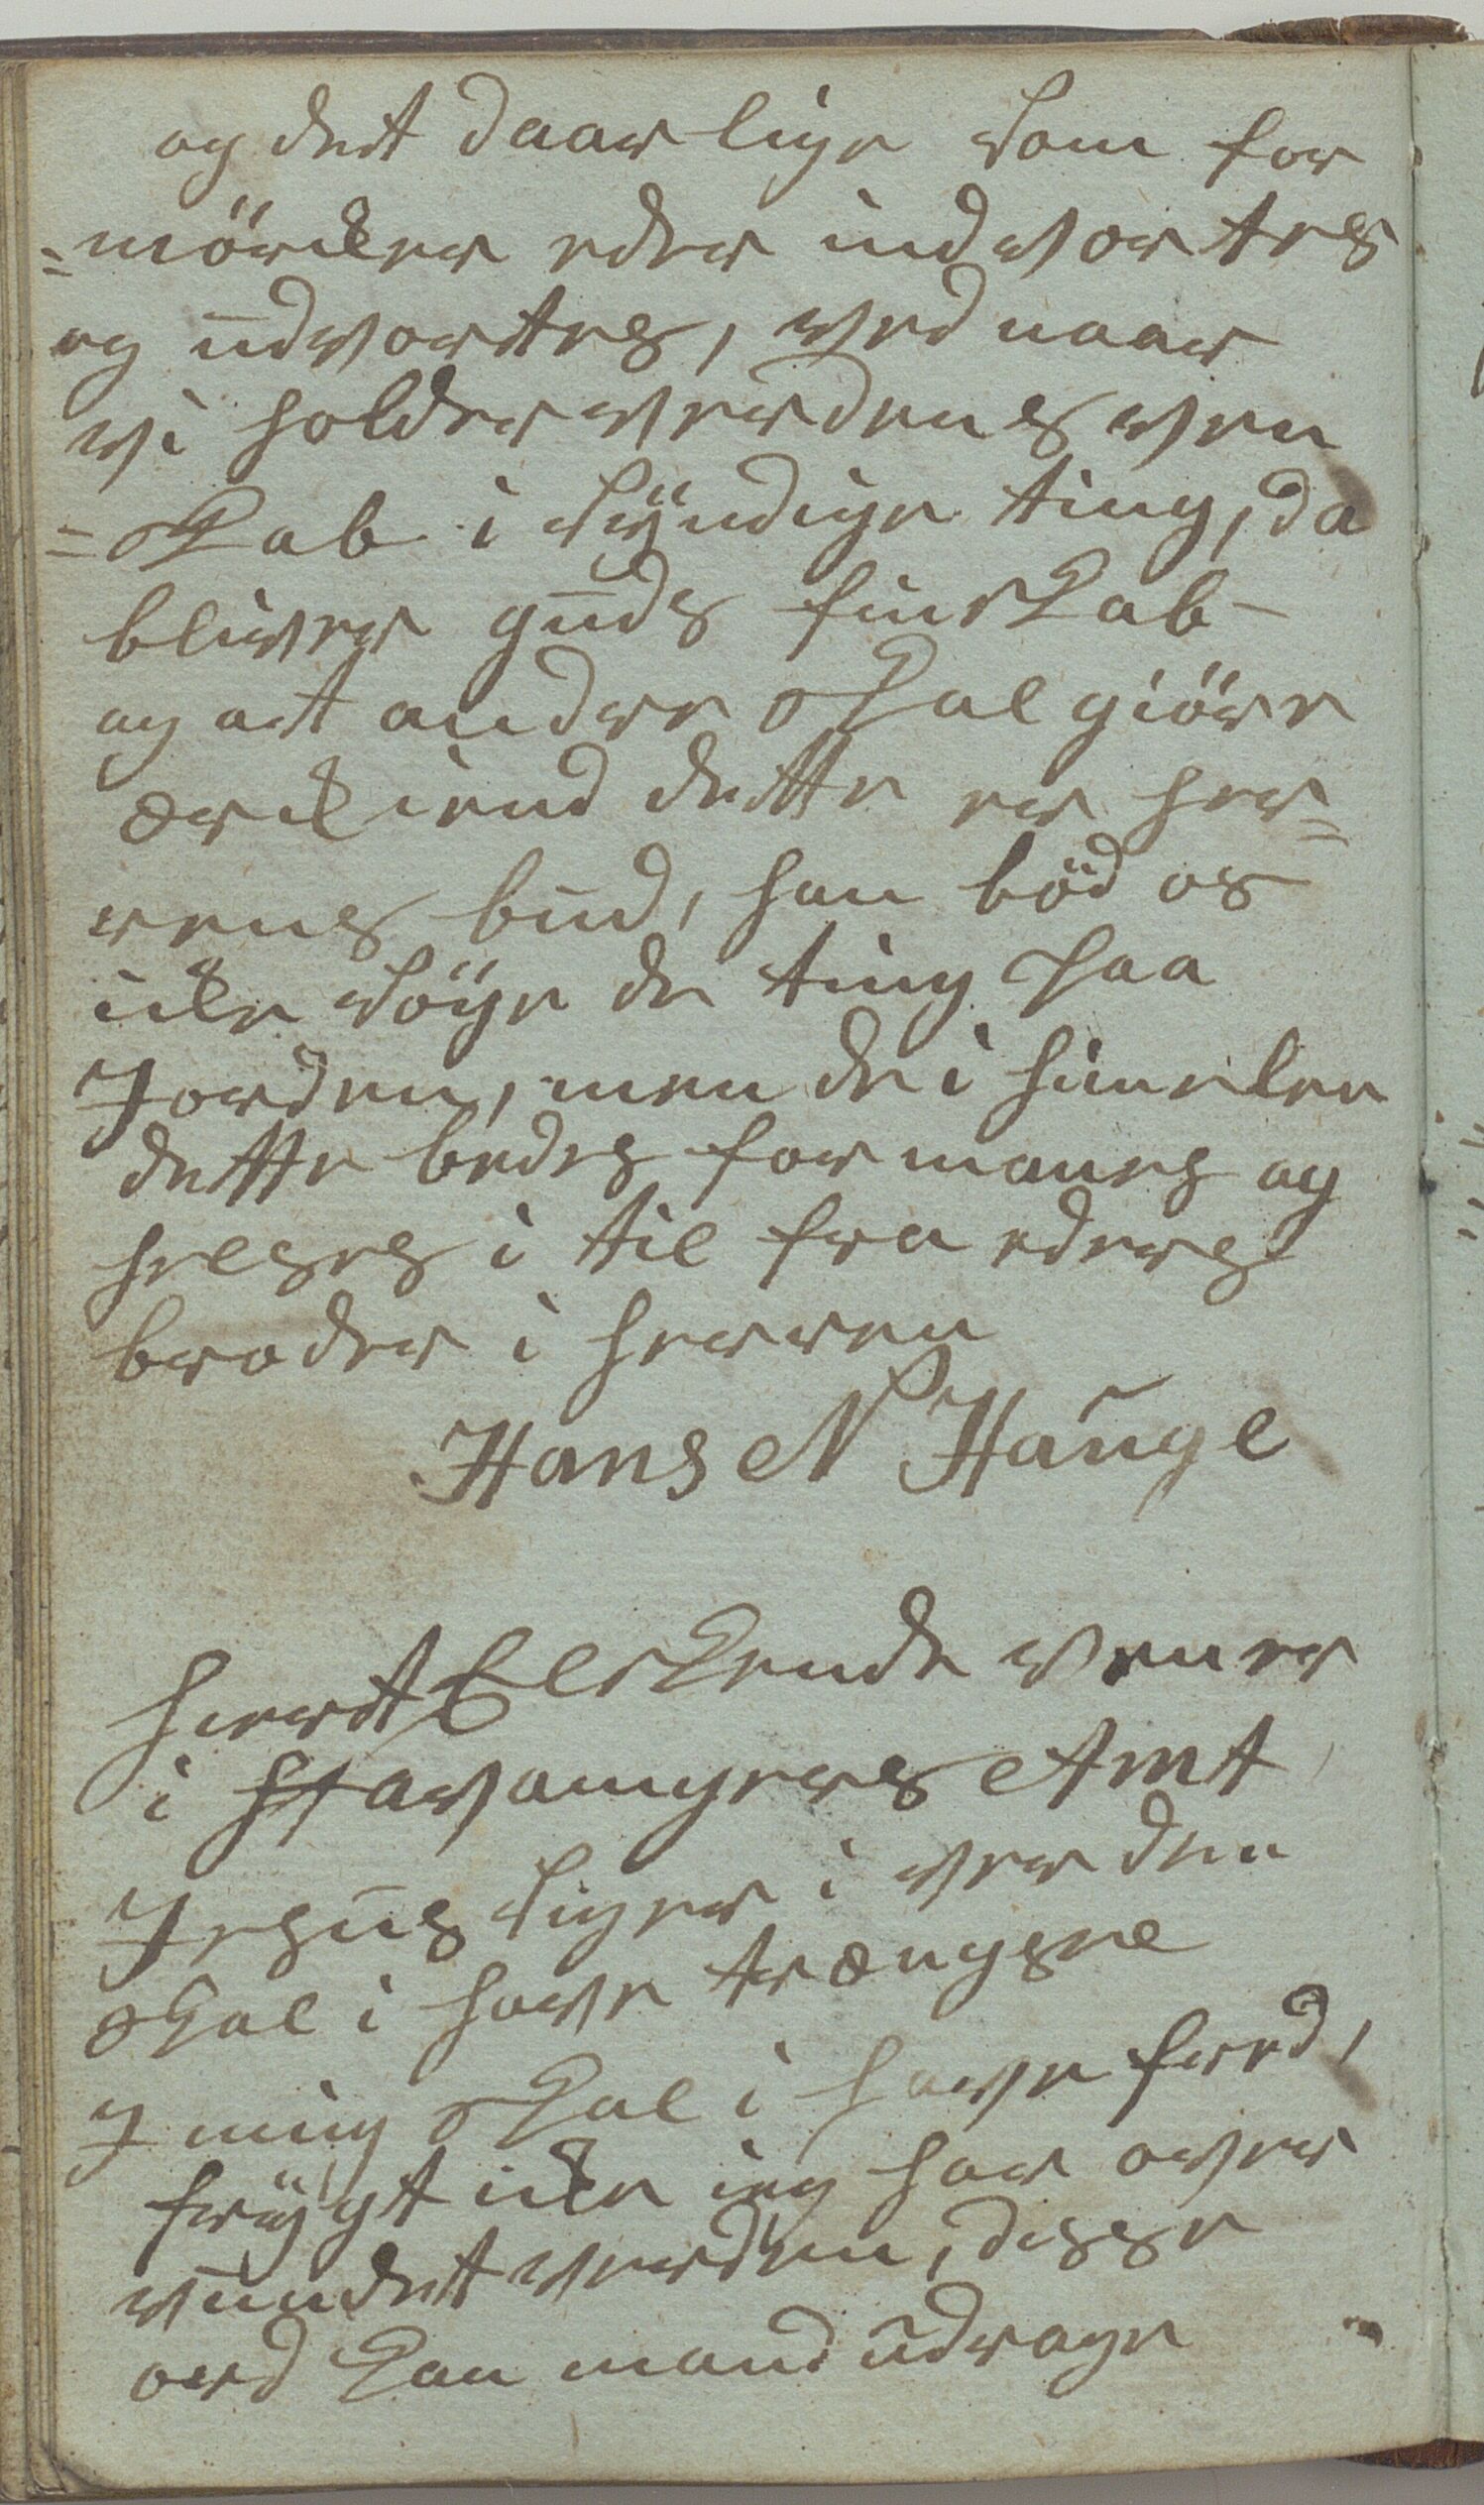 og det daarlige som for
=mörcker eder indvortes
og udvortes, ved naar
vi holder verdens ven
=skab i syndige ting, da
bliver guds finskab -
og at andre skal giöre
ærckiend dette er her=
rens bud, han böd os
icke söge de ting paa
Jorden, men de i himelen
dette bedes formanes og
helses i til fra eders
broder i herren
Hans N Hauge
Hiert Elskende vener
i Stavangers Amt
Jesus siger i verden
skal i have trængsel
I mig skal i have fred,
frygt icke ieg har over
vundet verden, desse
ord kan mand udrage